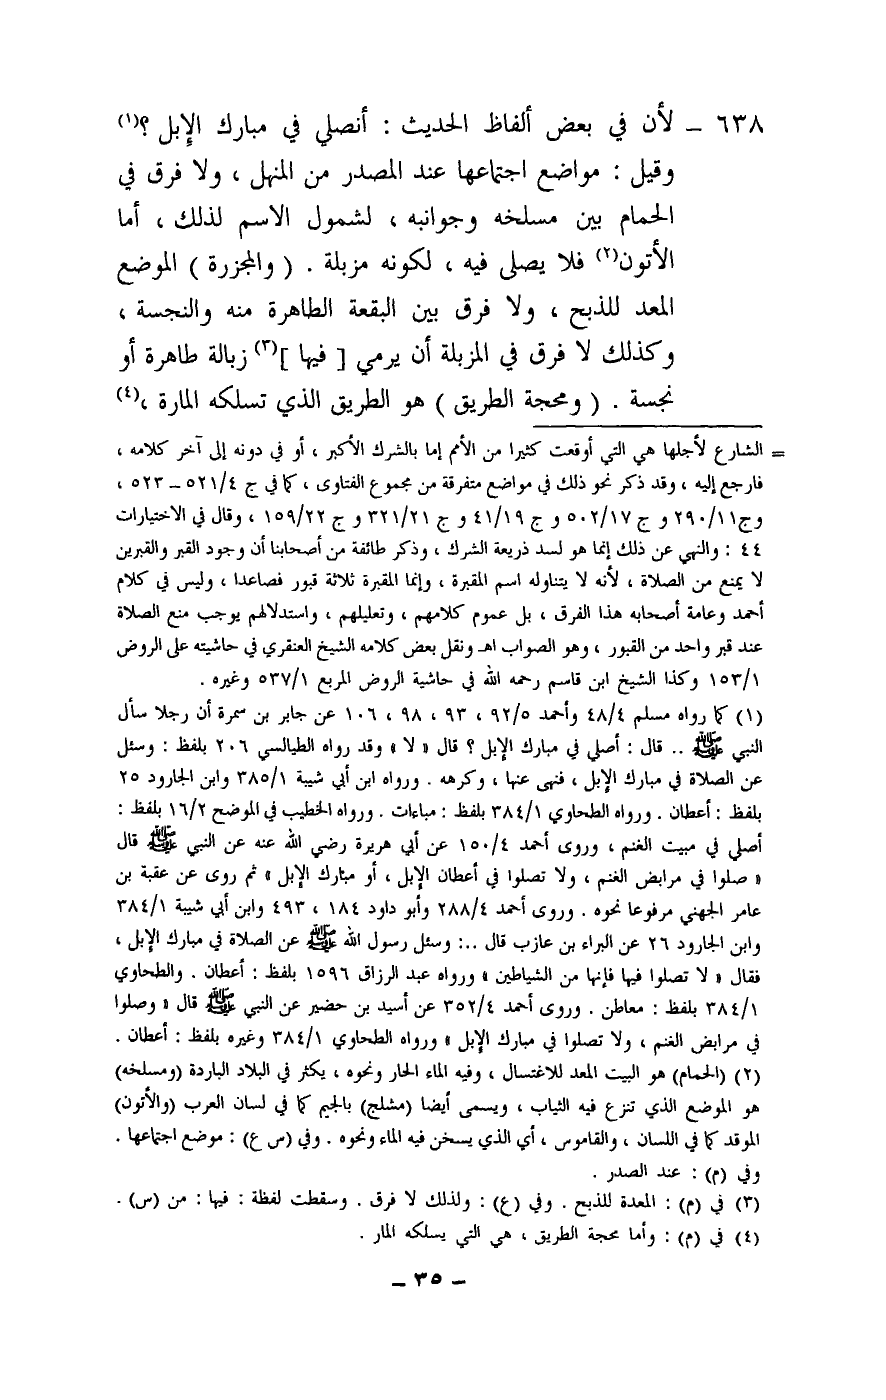 ٦٣٨ – لأن في بعض ألفاظ الحديث : أنصلي في مبارك الإبل ؟(١)
وقيل : مواضع اجتماعها عند المصدر من المنهل ، ولا فرق في
الحمام بين مسلخه وجوانبه ، لشمول الاسم لذلك ، أما
الأتون(٢) فلا يصلى فيه ، لكونه مزبلة . ( والمجزرة ) الموضع
المعد للذبح ، ولا فرق بين البقعة الطاهرة منه والنجسة ،
وكذلك لا فرق في المزبلة أن يرمي [ فيها ](٣) زبالة طاهرة أو
نجسة . ( ومحجة الطريق ) هو الطريق الذي تسلكه المارة ،(٤)
= الشارع لأجلها هي التي أوقعت كثيرا من الأمم إما بالشرك الأكبر ، أو في دونه إلى آخر كلامه ،
فارجع إليه ، وقد ذكر نحو ذلك في مواضع متفرقة من مجموع الفتاوى ، كما في ج ٥٢١/٤ – ٥٢٣ ،
وج٢٩٠/١١ و ج ٥٠٢/١٧ و ج ٤١/١٩ و ج ٣٢١/٢١ و ج ١٥٩/٢٢ ، وقال في الاختيارات
٤٤ : والنهي عن ذلك إنما هو لسد ذريعة الشرك ، وذكر طائفة من أصحابنا أن وجود القبر والقبرين
لا يمنع من الصلاة ، لأنه لا يتناوله اسم المقبرة ، وإنما المقبرة ثلاثة قبور فصاعدا ، وليس في كلام
أحمد وعامة أصحابه هذا الفرق ، بل عموم كلامهم ، وتعليلهم ، واستدلالهم يوجب منع الصلاة
عند قبر واحد من القبور ، وهو الصواب اهـ ونقل بعض كلامه الشيخ العنقري في حاشيته على الروض
١٥٣/١ وكذا الشيخ ابن قاسم رحمه الله في حاشية الروض المربع ٥٣٧/١ وغيره .
(١) كما رواه مسلم ٤٨/٤ وأحمد ٩٢/٥ ، ٩٣ ، ٩٨ ، ١٠٦ عن جابر بن سمرة أن رجلا سأل
النبي ﷺ .. قال : أصلي في مبارك الإبل ؟ قال « لا » وقد رواه الطيالسي ٢٠٦ بلفظ : وسئل
عن الصلاة في مبارك الإبل ، فنهى عنها ، وكرهه . ورواه ابن أبي شيبة ٣٨٥/١ وابن الجارود ٢٥
بلفظ : أعطان . ورواه الطحاوي ٣٨٤/١ بلفظ : مباءات . ورواه الخطيب في الموضح ١٦/٢ بلفظ :
أصلي في مبيت الغنم ، وروى أحمد ١٥٠/٤ عن أبي هريرة رضي الله عنه عن النبي ﷺ قال
« صلوا في مرابض الغنم ، ولا تصلوا في أعطان الإبل ، أو مبارك الإبل » ثم روى عن عقبة بن
عامر الجهني مرفوعا نحوه . وروى أحمد ٢٨٨/٤ وأبو داود ١٨٤ ، ٤٩٣ وابن أبي شيبة ٣٨٤/١
وابن الجارود ٢٦ عن البراء بن عازب قال ..: وسئل رسول الله ﷺ عن الصلاة في مبارك الإبل ،
فقال « لا تصلوا فيها فإنها من الشياطين » ورواه عبد الرزاق ١٥٩٦ بلفظ : أعطان . والطحاوي
٣٨٤/١ بلفظ : معاطن . وروى أحمد ٣٥٢/٤ عن أسيد بن حضير عن النبي ﷺ قال « وصلوا
في مرابض الغنم ، ولا تصلوا في مبارك الإبل » ورواه الطحاوي ٣٨٤/١ وغيره بلفظ : أعطان .
(٢) (الحمام) هو البيت المعد للاغتسال ، وفيه الماء الحار ونحوه ، يكثر في البلاد الباردة (ومسلخه)
هو الموضع الذي تنزع فيه الثياب ، ويسمى أيضا (مشلح) بالجيم كما في لسان العرب (والأتون)
الموقد كما في اللسان ، والقاموس ، أي الذي يسخن فيه الماء ونحوه . وفي (س ع) : موضع اجتماعها .
وفي (م) : عند الصدر .
(٣) في (م) : المعدة للذبح . وفي (ع) : ولذلك لا فرق . وسقطت لفظة : فيها : من (س) .
(٤) في (م) : وأما محجة الطريق ، هي التي يسلكه المار .
– ٣٥ –